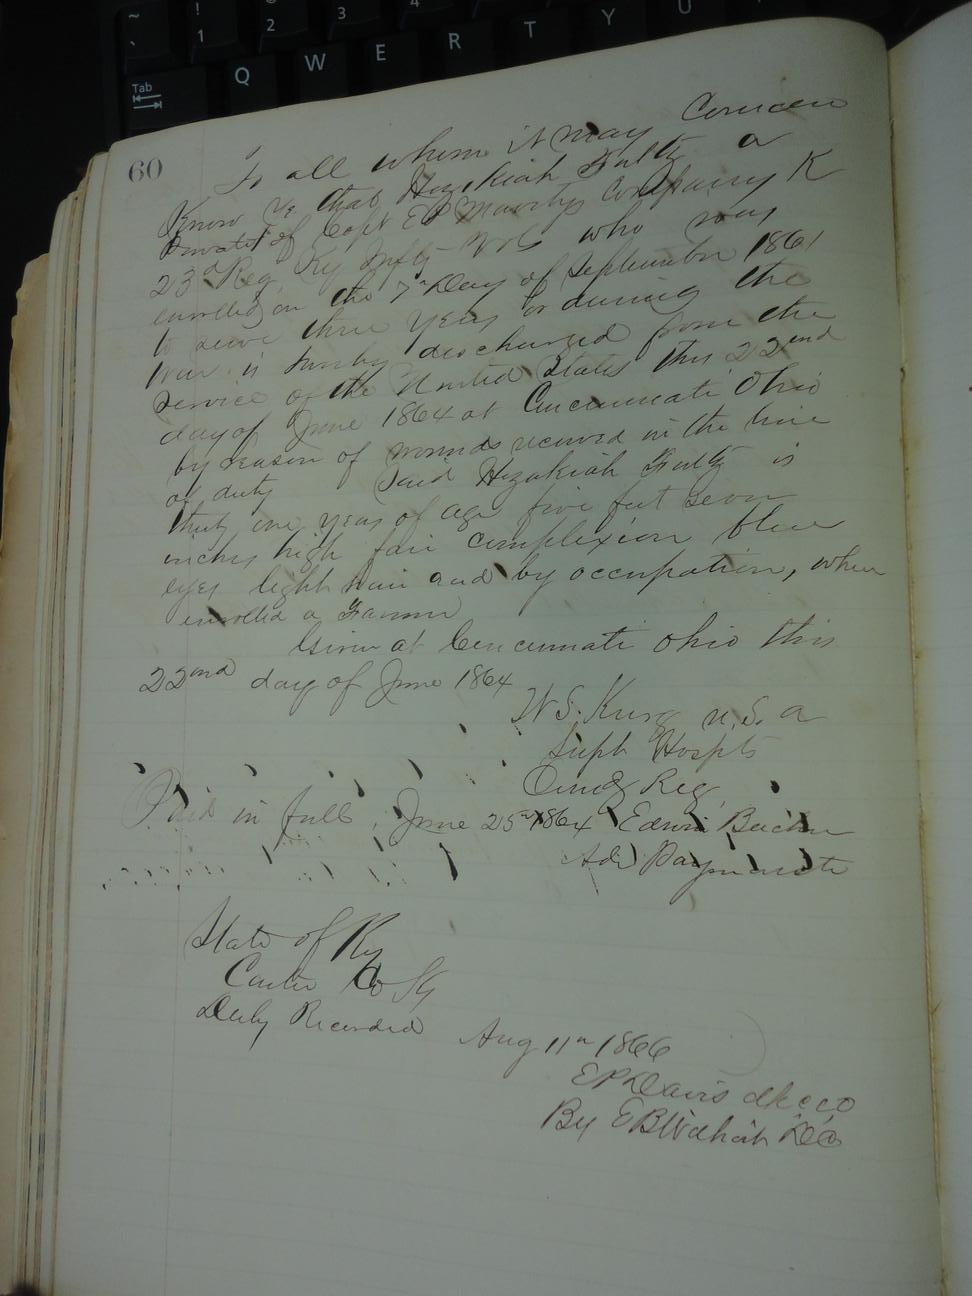 ~ ! 1 2 3 4
Tab Q W E R T Y U
60
To all whom it may Concern
Know Ye that Hezekiah Fultz a
Private of Capt E P Mavitys Company K
23d Reg Ky Infty Vols who was
enrolled on the 7th Day of September 1861
to serve three years or during the
War is hereby discharged from the
service of the United States this 22nd
day of June 1864 at Cincinnati Ohio
by reason of wounds received in the line
of duty Said Hezakiah Fultz is
thirty one years of age five feet seven
inches high fair complexion blue
eyes light hair and by occupation, when
enrolled a Farmer
Given at Cincinnati Ohio this
22nd day of June 1864
W S. King U.S. A
Supt Hospts
Reg
Paid in full, June 25th 1864 Edwin
Paymaste
State of Ky
Carter Co Sct
Duly Recorded
Aug 11th 1866
E P Davis clk c c c
By E B DC